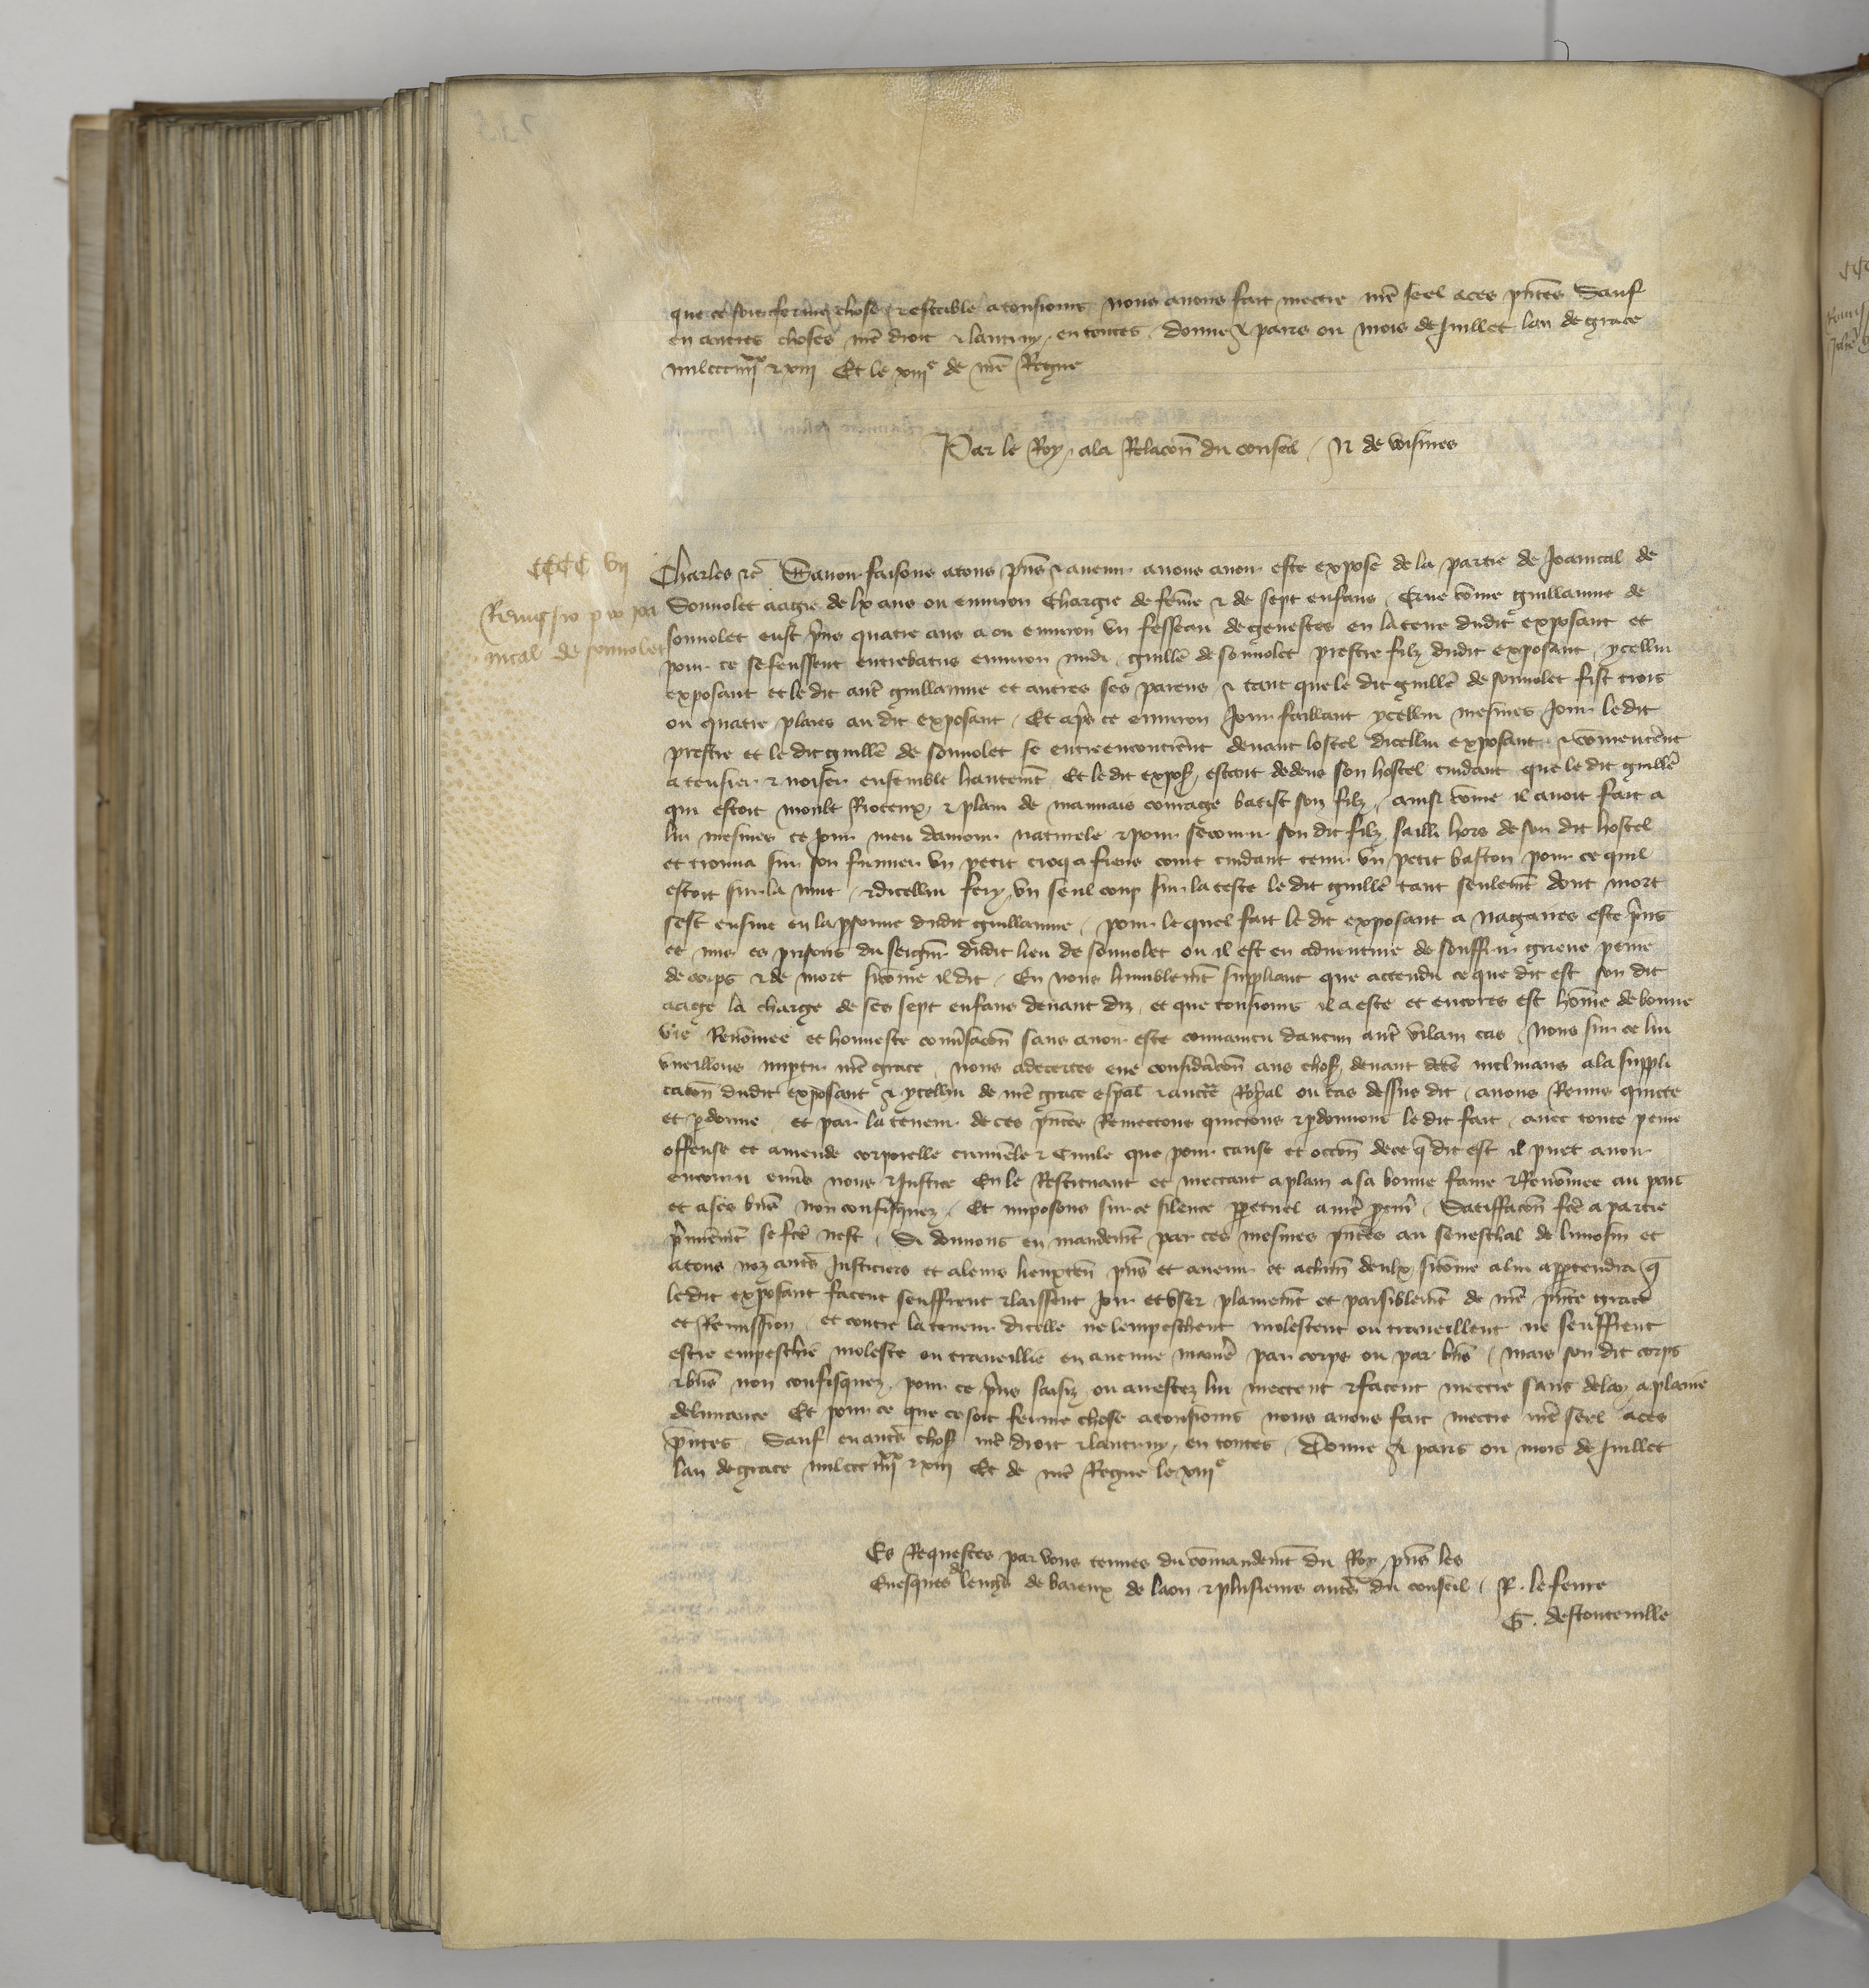 que ce soit ferme chose & estable a tousiours nous auons fait mectre nr̄e seel a ces pn̄tes Sauf
en autres choses nr̄e droit & lautruy en toutes donne a paris ou mois de Juillet lan de grace
mil ccc iiiixx & xiii Et le xiiie de nr̄e Regne
Par le Roy a la Relacōn du conseil N de voisines
CCCC VII
Remissio pro Joa
nical de sonnolet
Charles &c̄ Sauoir faisons a tous pn̄s & auenir a nous auoir este expose de la partie de Joanical de
Sonnolet aagie de lx ans ou enuiron Chargie de fēme & de sept enfans Que cōme guillaume de
sonnolet eust pr̄ns quatre ans a ou enuiron vn fesseau de genestes en la terre dudit exposant et
pour ce se feussent entrebatus enuiron midi guillē de sonnolet prestre filz dudit exposant ycellui
exposant et le dit aut̄ guillaume et autres ses parens & tant que le dit guillē de sonnolet fist trois
ou quatre plaies au dit exposant Et apr̄s ce enuiron Jour faillant ycellui mesmes Jour le dit
prestre et le dit guillē de sonnolet se entrencontrēnt deuant lostel dicellui exposant & cōmencēnt
a tensier & noisier ensemble hautemt̄ Et le dit expos̄ estoit dedens son hostel cuidant que le dit guillē
qui estoit moult Rioteux & plain de mauuais courage batist son filz ainsi cōme il auoit fait a
lui mesmes ce jour meu damour naturele & pour secourir son dit filz sailli hors de son dit hostel
et trouua sur son fumier vn petit croq a fiens court cuidant tenir vn petit baston pour ce quil
estoit sur la nuit & dicellui fery vn seul coup sur la teste le dit guillē tant seulemt̄ dont mort
sest ensuie en la psonne dudit guillaume pour le quel fait le dit exposant a nagaires este pr̄ns
et mis es prisons du seigneur dudit lieu de sonnolet ou il est en aduenture de souffrir grieue peine
de corps & de mort sicōme il dit En nous humblemt̄ suppliant que attendu ce que dit est son dit
aage la charge de ses sept enfans deuant diz et que tousiours il a este et encores est hōme de bonne
vie Renōmee et honneste conūsacōn sans auoir este conuaincu daucun aut̄ vilain cas Nous sur ce lui
vueillons imptir nr̄e grace nous adecertes eue consid̄acōn aus chos̄ deuant dc̄es inclinans a la suppli
cacōn dudit exposant a ycellui de nr̄e grace esp̄al & auct̄e Royal ou cas dessus dit auons Remis quicte
et pardonne et par la teneur de ces pn̄tes Remectons quictons & pardonnons le dit fait auec toute peine
offense et amende corporelle crimēle & Ciuile que pour cause et occōn de ce q̄ dit est il puet auoir
encouru enūs nous & Justice En le Restituant et mectant a plain a sa bonne fame & Renōmee au pais
et a ses bn̄s non confisquez Et imposons sur ce silence ppetuel a nr̄e pcur̄ Satiffacōn fc̄e a partie
pr̄mierēmt̄ se fc̄e nest Si donnons en mandemt̄ par ces mesmes pn̄tes au seneschal de limosin et
a tous noz aut̄s Justiciers et a leurs lieuxten̄ pn̄s et auenir et a chūn deulx sicōme a lui appartendra q̄
le dit exposant facent seuffrent & laissent joir et vser plainemt̄ et paisiblemt̄ de nr̄e pn̄te grace
et Remission et contre la teneur dicelle ne lempeschent molestent ou traueillent ne seuffrent
estre empeschie moleste ou traueillie en aucune manie᷑ par corps ou par bn̄s Mais son dit corps
& bn̄s non confisquez pour ce pr̄ns saisiz ou arrestez lui mectent & facent mectre sans delay a plaine
deliurance Et pour ce que ce soit ferme chose a tousiours nous auons fait mectre nr̄e seel a ces
pn̄tes Sauf en aut̄s chos̄ nr̄e droit & lautruy en toutes Donne a paris ou mois de Juillet
lan de grace mil ccc iiiixx & xiii Et de nr̄e Regne le xiiie
Es Requestes par vous tenues du cōmandemt̄ du Roy pn̄s les
Euesques de lengr̄s de baieux de laon & plusieurs aut̄s du conseil P. le feure
G. destouteuille